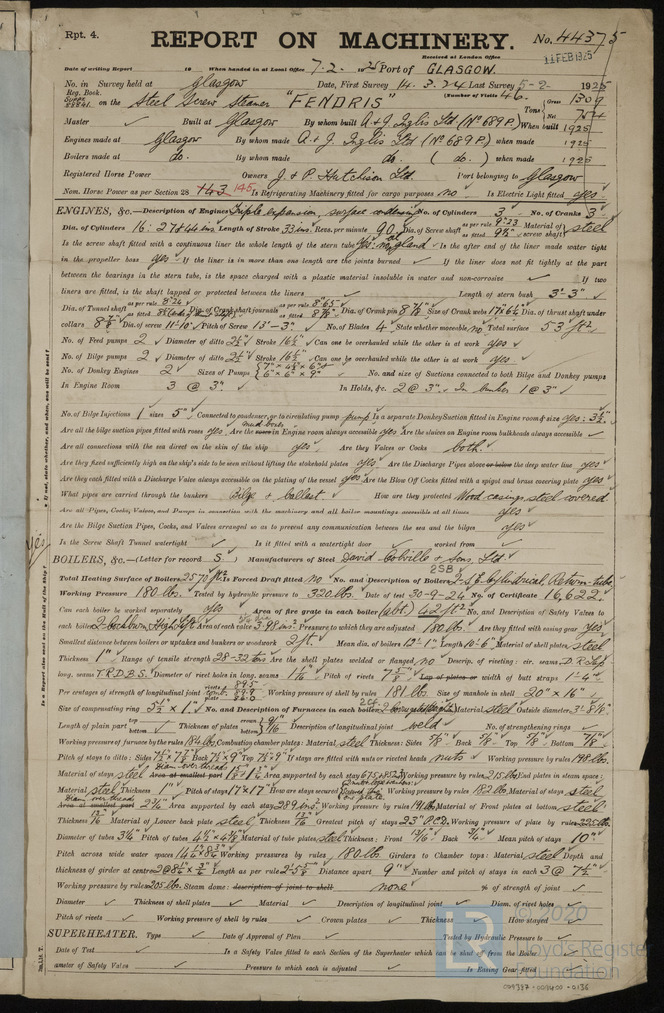 Rpt. 4.
REPORT ON MACHINERY.
No. 44375
11 FEB 1925
Received at London Office
Date of writing Report 19 When handed in at Local Office 7-2- 1925 Port of GLASGOW.
No. in Survey held at Glasgow Date, First Survey 14.3.24 Last Survey 5-2- 1925
Reg. Book.
(Number of Visits 46.
on the Steel Screw Steamer "FENDRIS" Tons Gross 1309 Net 754
Master Built at Glasgow By whom built A. & J. Inglis Ltd (No 689P.) When built 1925
Engines made at Glasgow By whom made A. & J. Inglis Ltd (No 689P.) when made 1925
Boilers made at do. By whom made do. (do.) when made 1925
Registered Horse Power Owners J. & P. Hutchison Ltd. Port belonging to Glasgow
Nom. Horse Power as per Section 28 143 145 Is Refrigerating Machinery fitted for cargo purposes no Is Electric Light fitted yes
ENGINES, &c.—Description of Engines Triple expansion, surface condensing No. of Cylinders 3 No. of Cranks 3
Dia. of Cylinders 16: 27 & 44 ins Length of Stroke 33 ins. Revs. per minute 90 Dia. of Screw shaft as per rule 9.23 as fitted 9½" Material of screw shaft steel
Is the screw shaft fitted with a continuous liner the whole length of the stern tube yes: no gland Is the after end of the liner made water tight
in the propeller boss yes If the liner is in more than one length are the joints burned If the liner does not fit tightly at the part
between the bearings in the stern tube, is the space charged with a plastic material insoluble in water and non-corrosive If two
liners are fitted, is the shaft lapped or protected between the liners Length of stern bush 3'-3"
Dia. of Tunnel shaft as per rule 8.24 as fitted Dia. of Crank shaft journals as per rule 8.65 as fitted 8⅞" Dia. of Crank pin 8⅞" Size of Crank webs 17×6¼ Dia. of thrust shaft under
collars 8⅞ Dia. of screw 11'-10" Pitch of Screw 13'-3" No. of Blades 4 State whether moveable no Total surface 53 ft²
No. of Feed pumps 2 Diameter of ditto 2½" Stroke 16½" Can one be overhauled while the other is at work yes
No. of Bilge pumps 2 Diameter of ditto 2½" Stroke 16½" Can one be overhauled while the other is at work yes
No. of Donkey Engines 2 Sizes of Pumps No. and size of Suctions connected to both Bilge and Donkey pumps
In Engine Room 3 @ 3" In Holds, &c. 2 @ 3". In bunker 1 @ 3"
No. of Bilge Injections 1 sizes 5" Connected to condenser, or to circulating pump pump Is a separate Donkey Suction fitted in Engine room & size yes: 3½"
Are all the bilge suction pipes fitted with roses yes Are the mud boxes in Engine room always accessible yes Are the sluices on Engine room bulkheads always accessible
Are all connections with the sea direct on the skin of the ship yes Are they Valves or Cocks both
Are they fixed sufficiently high on the ship's side to be seen without lifting the stokehold plates yes Are the Discharge Pipes above or below the deep water line yes
Are they each fitted with a Discharge Valve always accessible on the plating of the vessel yes Are the Blow Off Cocks fitted with a spigot and brass covering plate yes
What pipes are carried through the bunkers Bilge & ballast. How are they protected Wood casings, steel covered
Are all Pipes, Cocks, Valves, and Pumps in connection with the machinery and all boiler mountings accessible at all times yes
Are the Bilge Suction Pipes, Cocks, and Valves arranged so as to prevent any communication between the sea and the bilges yes
Is the Screw Shaft Tunnel watertight Is it fitted with a watertight door worked from
BOILERS, &c.—(Letter for record S) Manufacturers of Steel David Colville & Sons, Ltd
Total Heating Surface of Boilers 2570 ft² Is Forced Draft fitted no No. and Description of Boilers 2-S.E. Cylindrical, Return-tube
2SB
Working Pressure 180 lbs. Tested by hydraulic pressure to 320 lbs. Date of test 30-9-24 No. of Certificate 16,622.
Can each boiler be worked separately yes Area of fire grate in each boiler (abt.) 42 ft² No. and Description of Safety Valves to
each boiler 2 Cockburn High Lift Area of each valve 3.98 ins² Pressure to which they are adjusted 180 lbs. Are they fitted with easing gear yes
Smallest distance between boilers or uptakes and bunkers or woodwork 2 ft. Mean dia. of boilers 12'-1" Length 10'-6" Material of shell plates steel
Thickness 1" Range of tensile strength 28-32 tons Are the shell plates welded or flanged no Descrip. of riveting: cir. seams D.R. Lap
long. seams T.R.D.B.S. Diameter of rivet holes in long. seams 1 1/16 Pitch of rivets 7 5/8 Lap of plates or width of butt straps 1'-4"
Per centages of strength of longitudinal joint rivets 89.5 plate 86.0 Working pressure of shell by rules 181 lbs. Size of manhole in shell 20" × 16"
Size of compensating ring 5½ × 1" No. and Description of Furnaces in each boiler Material steel Outside diameter 3'-8⅛"
Length of plain part top bottom Thickness of plates crown bottom 9/16 Description of longitudinal joint weld No. of strengthening rings
Working pressure of furnace by the rules 184 lbs Combustion chamber plates: Material steel Thickness: Sides 5/8" Back 5/8" Top 5/8" Bottom 7/8"
Pitch of stays to ditto: Sides 7½×7¾ Back 7½×9" Top 7½×9" If stays are fitted with nuts or riveted heads nuts Working pressure by rules 198 lbs.
Material of stays steel Area at smallest part Area supported by each stay Working pressure by rules 215 lbs End plates in steam space:
Material steel Thickness 1" Pitch of stays 17×17" How are stays secured Working pressure by rules 182 lbs Material of stays steel
Area at smallest part 2¾" Area supported by each stay 289 ins² Working pressure by rules 191 lbs Material of Front plates at bottom steel
Thickness 13/16 Material of Lower back plate steel Thickness 13/16 Greatest pitch of stays 23" P.C.D. Working pressure of plate by rules
Diameter of tubes 3¼" Pitch of tubes 4½"×4⅜" Material of tube plates steel Thickness: Front 13/16" Back ¾" Mean pitch of stays 10"
Pitch across wide water spaces Working pressures by rules 180 lbs Girders to Chamber tops: Material steel Depth and
thickness of girder at centre 2@8¼"×¾" Length as per rule 2'-5⅝" Distance apart 9" Number and pitch of stays in each 3 @ 7½"
Working pressure by rules 205 lbs. Steam dome: description of joint to shell none % of strength of joint
Diameter Thickness of shell plates Material Description of longitudinal joint Diam. of rivet holes
Pitch of rivets Working pressure of shell by rules Crown plates Thickness How stayed
SUPERHEATER. Type Date of Approval of Plan Tested by Hydraulic Pressure to
Date of Test Is a Safety Valve fitted to each Section of the Superheater which can be shut off from the Boiler
ameter of Safety Valve Pressure to which each is adjusted Is Easing Gear fitted
© 2020
Lloyd's Register
Foundation
009387-009400-0136